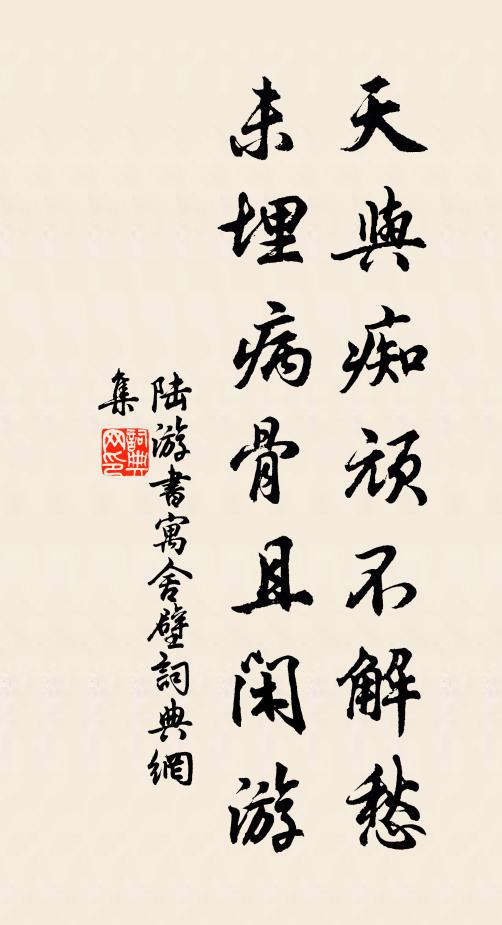 天與痴頑不解愁
未埋病骨且閑游
陆游書寓舍壁詞典網
集
詞典
网印